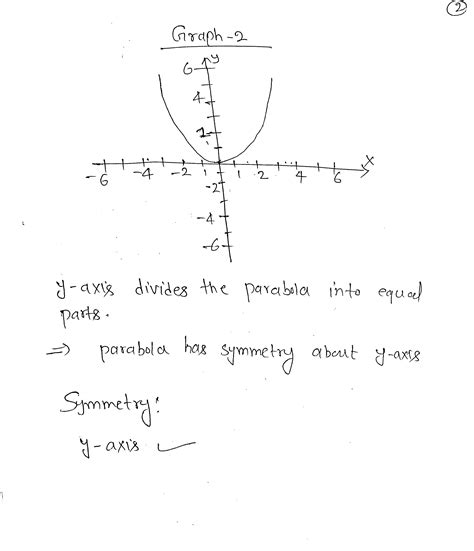 2
Graph-2
y
6
4
2
x
-6 -4 -2 1 1 2 4 6
-2
-4
-6
y-axis divides the parabola into equal
parts.
⇒ parabola has symmetry about y-axis
Symmetry:
y-axis ✓